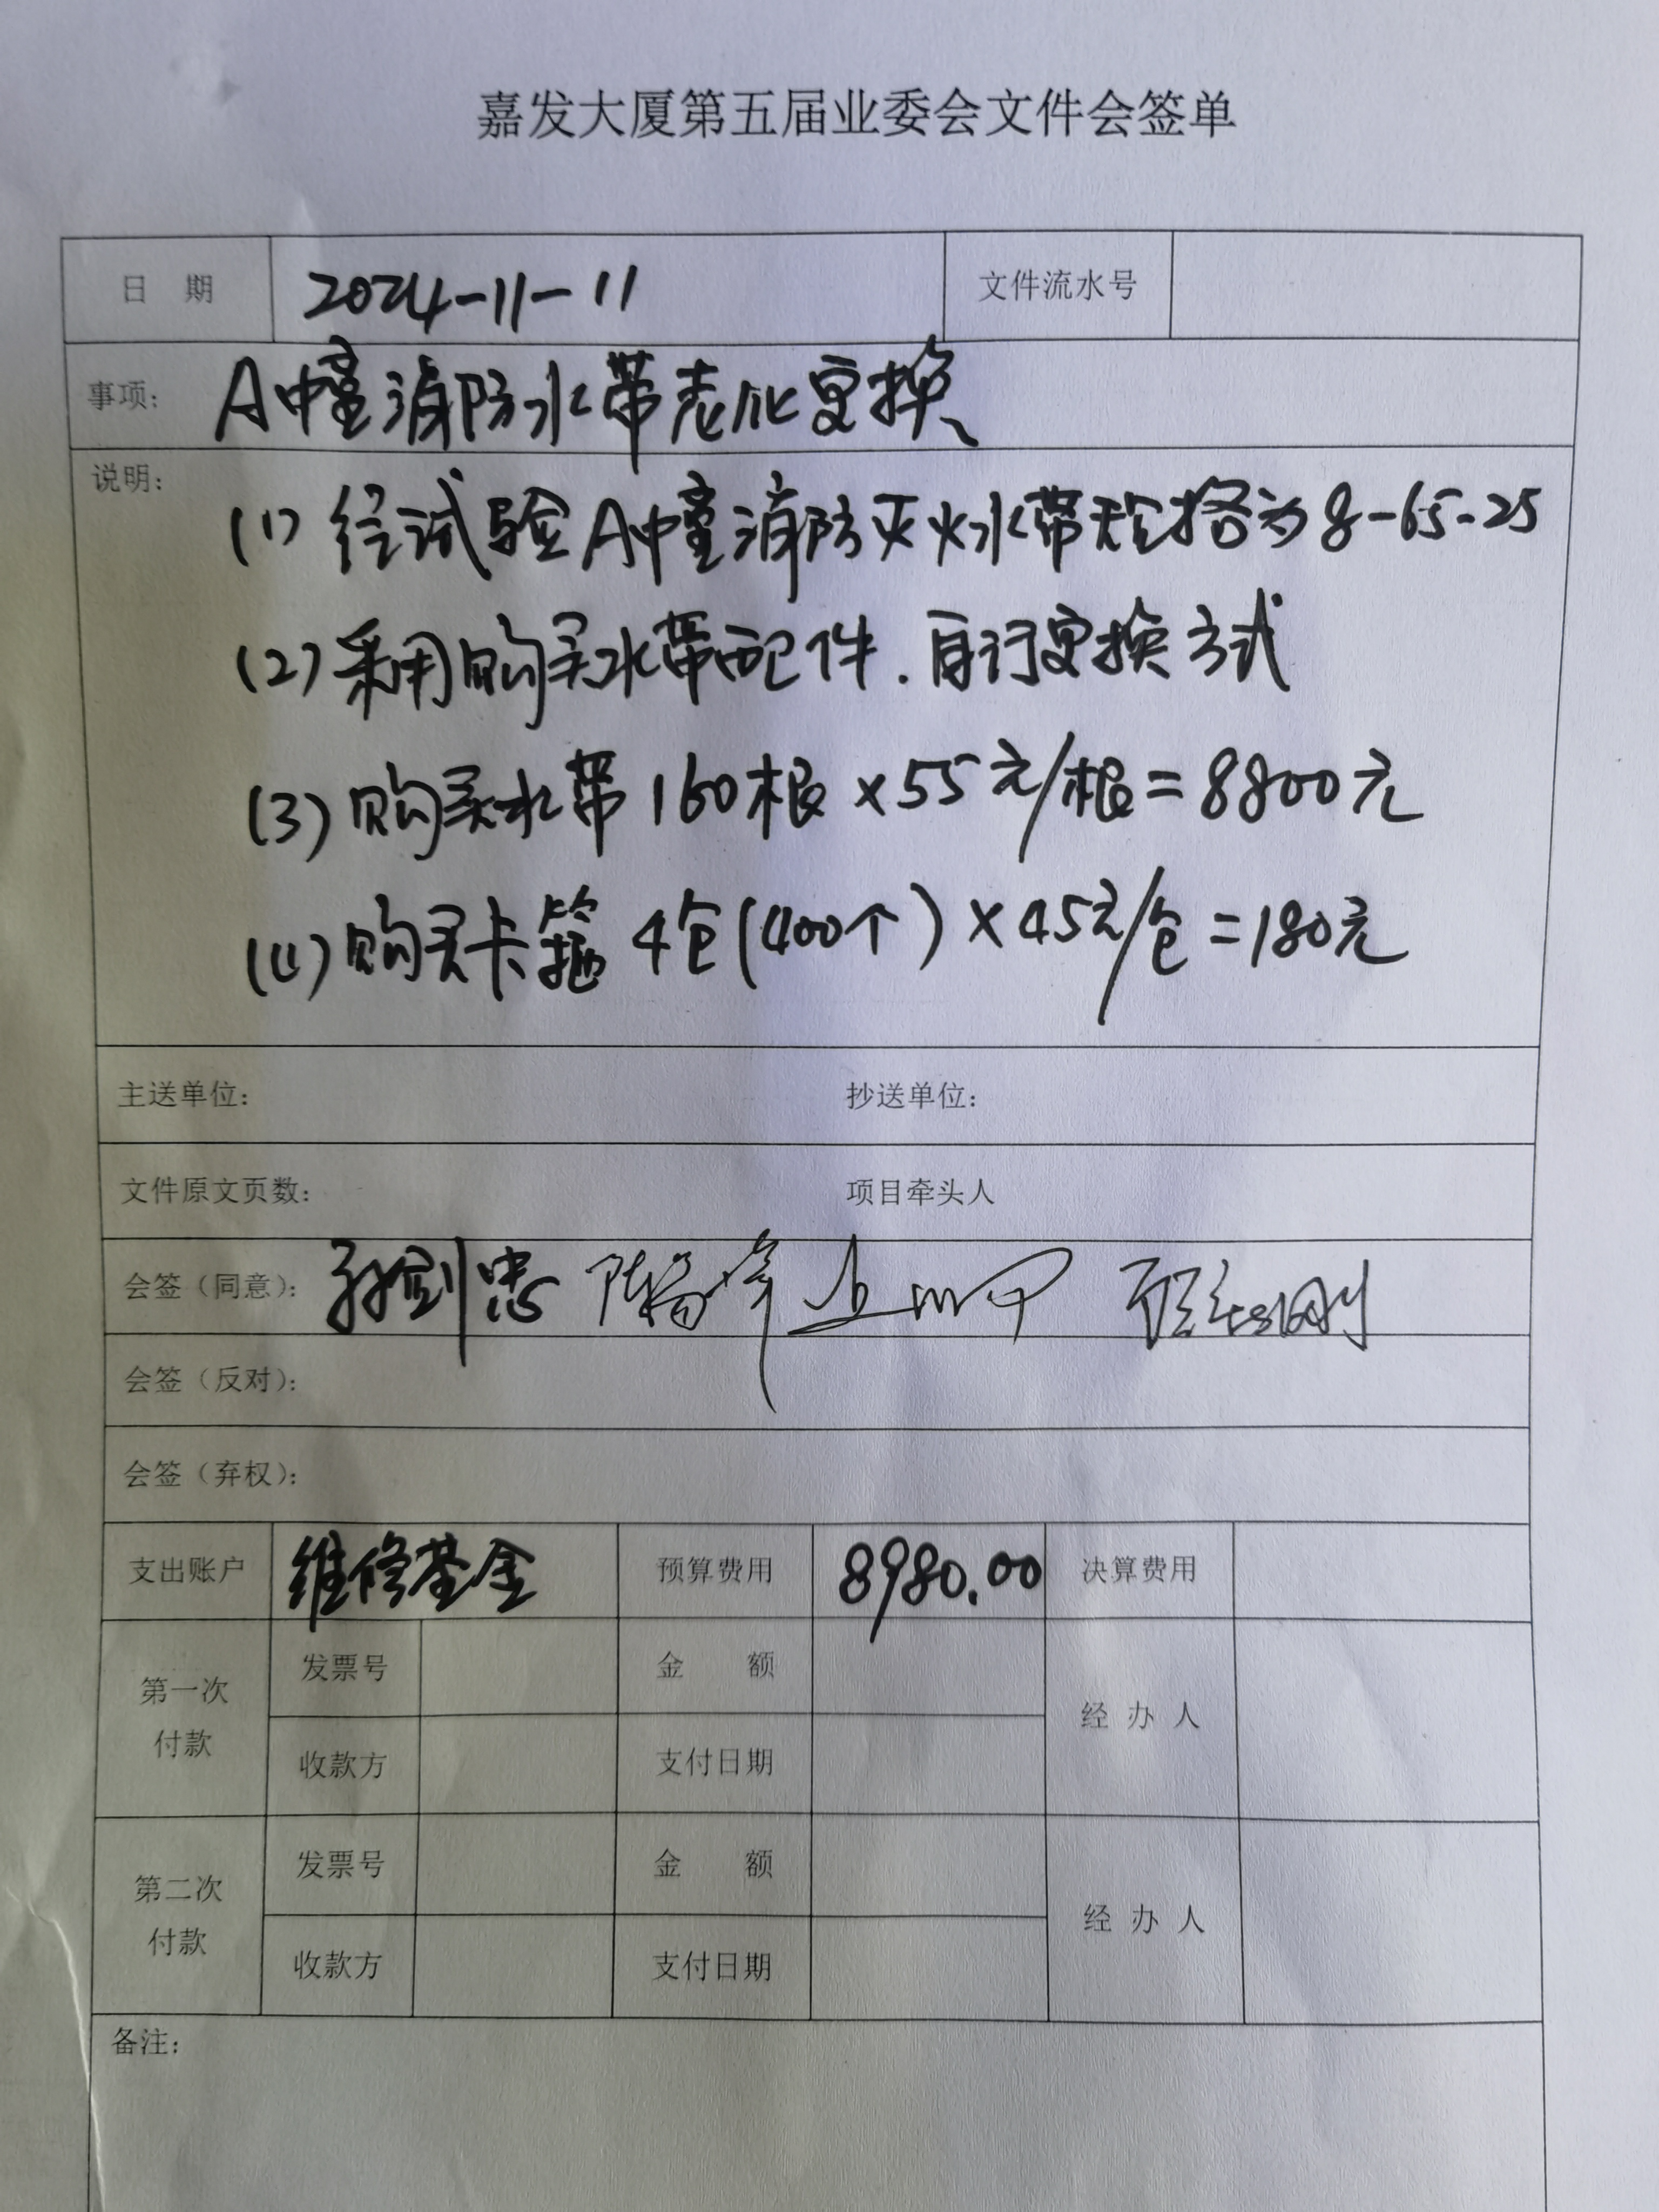 嘉发大厦第五届业委会文件会签单
日 期 2024-11-11 文件流水号
事项: A幢消防水带老化更换
说明:
(1) 经试验A幢消防灭火水带规格为8-65-25
(2) 采用购买水带配件.自行更换方式
(3) 购买水带160根×55元/根=8800元
(4) 购买卡箍 4包(400个)×45元/包=180元
主送单位: 抄送单位:
文件原文页数: 项目牵头人
会签(同意): 孙剑忠
会签(反对):
会签(弃权):
支出账户 维修基金 预算费用 8980.00 决算费用
第一次付款 发票号 金 额 经 办 人
收款方 支付日期
第二次付款 发票号 金 额 经 办 人
收款方 支付日期
备注: